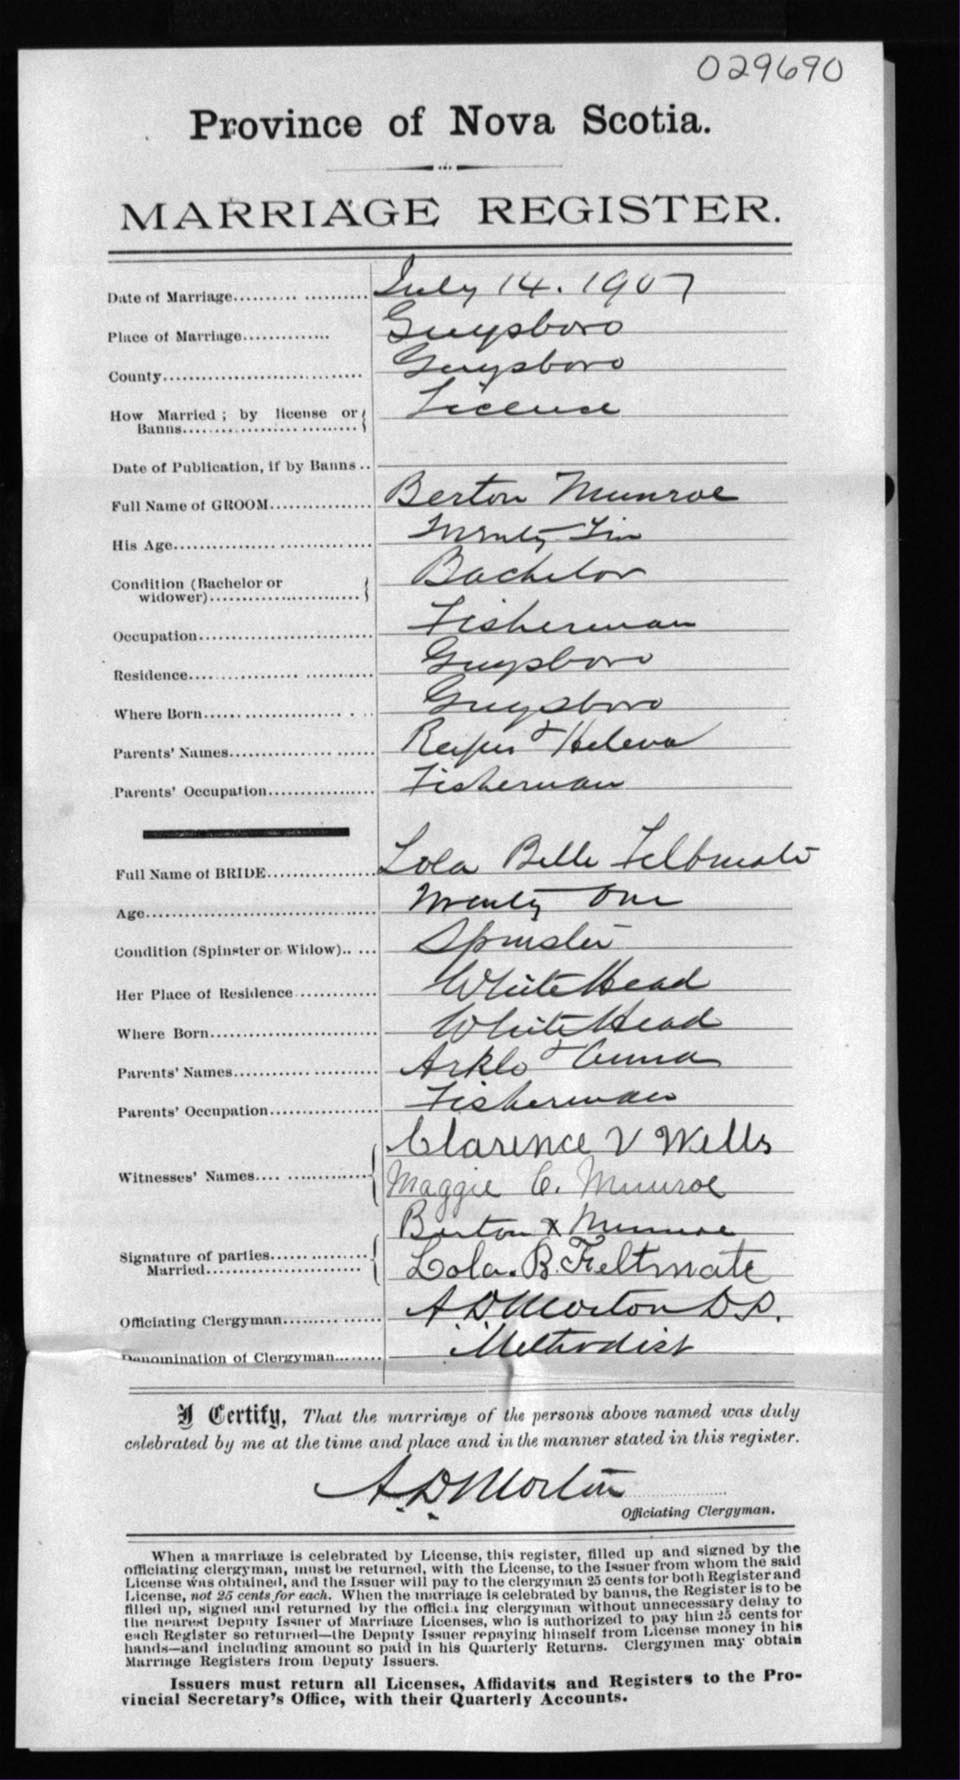 029690
Province of Nova Scotia.
MARRIAGE REGISTER.
Date of Marriage.......... July 14. 1907
Place of Marriage............. Guysboro
County............................ Guysboro
How Married ; by license or License
Banns............................
Date of Publication, if by Banns ..
Full Name of GROOM............... Berton Munroe
His Age............................ Twenty
Condition (Bachelor or Bachelor
widower)..........................
Occupation........................ Fisherman
Residence......................... Guysboro
Where Born........................ Guysboro
Parents' Names.................... Rufus & Helena
Parents' Occupation............... Fisherman
Full Name of BRIDE................ Lola Belle Feltmate
Age............................... Twenty One
Condition (Spinster or Widow)..... Spinster
Her Place of Residence............ White Head
Where Born........................ White Head
Parents' Names.................... Arklo & Anna
Parents' Occupation............... Fisherman
Clarence V Wells
Witnesses' Names.................. Maggie C. Munroe
Berton x Munroe
Signature of parties..............
Married........................... Lola. B. Feltmate
Officiating Clergyman............. A. D. Morton D.D.
Denomination of Clergyman........ Methodist
I Certify, That the marriage of the persons above named was duly
celebrated by me at the time and place and in the manner stated in this register.
A. D. Morton
Officiating Clergyman.
When a marriage is celebrated by License, this register, filled up and signed by the
officiating clergyman, must be returned, with the License, to the Issuer from whom the said
License was obtained, and the Issuer will pay to the clergyman 25 cents for both Register and
License, not 25 cents for each. When the marriage is celebrated by banns, the Register is to be
filled up, signed and returned by the officiating clergyman without unnecessary delay to
the nearest Deputy Issuer of Marriage Licenses, who is authorized to pay him 25 cents for
each Register so returned—the Deputy Issuer repaying himself from License money in his
hands—and including amount so paid in his Quarterly Returns. Clergymen may obtain
Marriage Registers from Deputy Issuers.
Issuers must return all Licenses, Affidavits and Registers to the Pro-
vincial Secretary's Office, with their Quarterly Accounts.